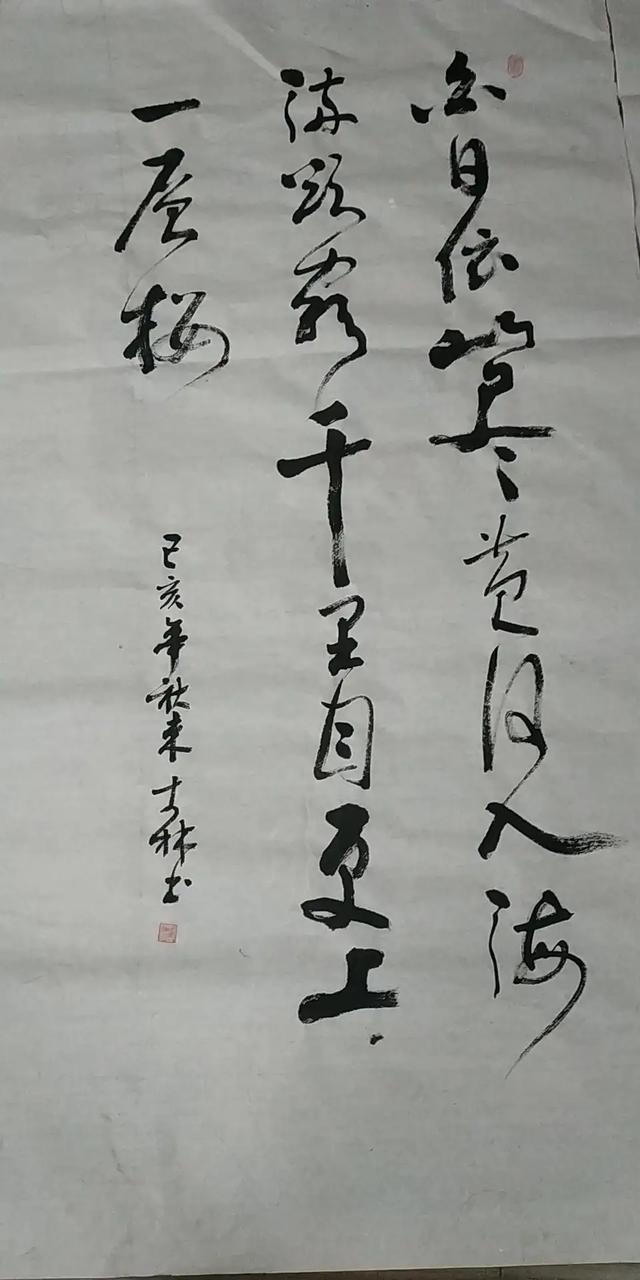 白日依山尽黄河入海
流欲穷千里目更上
一层楼
己亥年秋林书